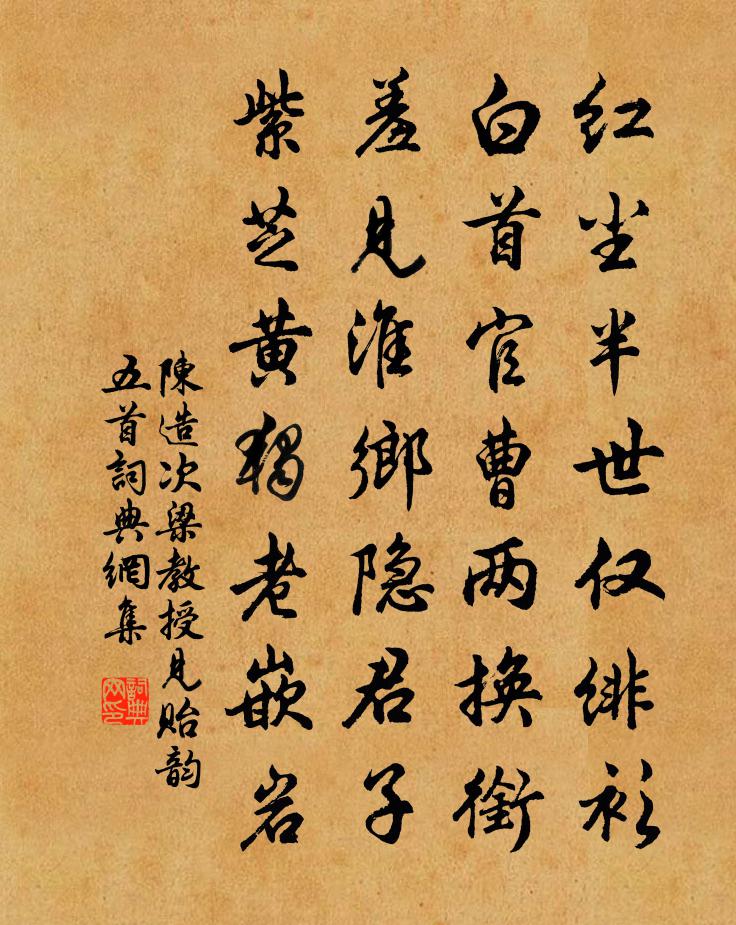 红尘半世仅绯衫
白首官曹两换衔
羞见淮乡隐君子
紫芝黄独老嵌岩
陳造次梁教授見貽韵
五首詞典網集
詞典网印